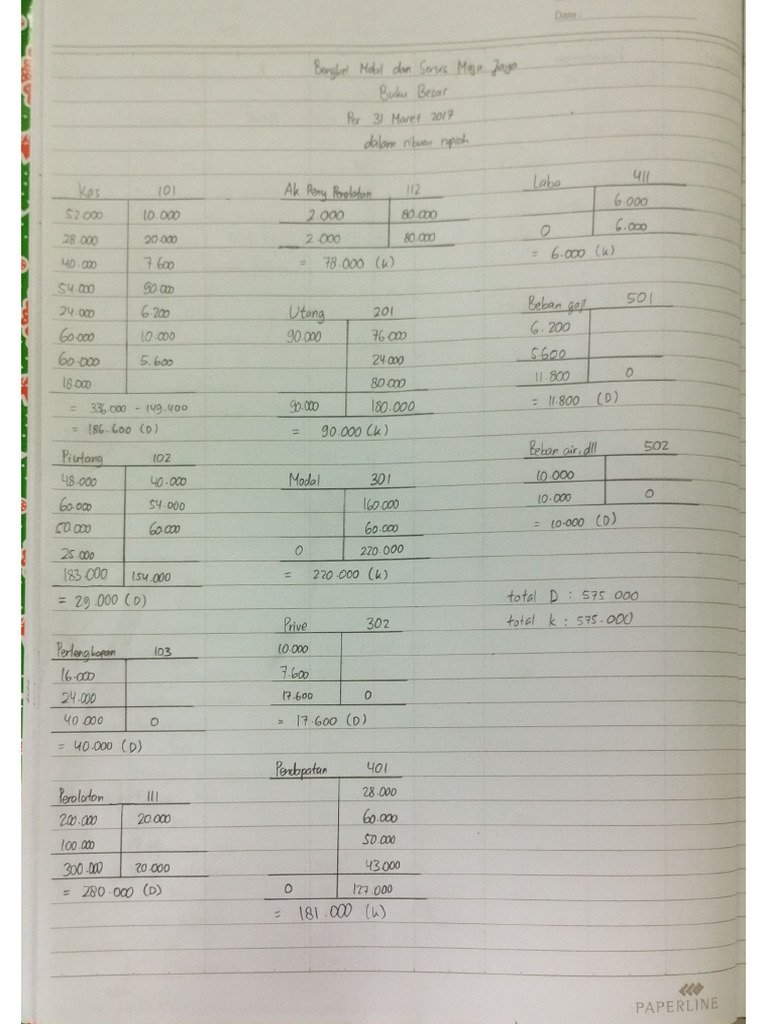 Date :
Bengkel Mobil dan Servis Maja Jaya
Buku Besar
Per 31 Maret 2017
dalam ribuan rupiah
Kas 101
52.000 10.000
28.000 20.000
40.000 7.600
54.000 90.000
24.000 6.200
60.000 10.000
60.000 5.600
18.000
= 336.000 - 149.400
= 186.600 (D)
Piutang 102
48.000 40.000
60.000 54.000
50.000 60.000
25.000
183.000 154.000
= 29.000 (D)
Perlengkapan 103
16.000
24.000
40.000 0
= 40.000 (D)
Peralatan 111
200.000 20.000
100.000
300.000 20.000
= 280.000 (D)
Ak Peny Peralatan 112
2.000 80.000
2.000 80.000
= 78.000 (K)
Utang 201
90.000 76.000
24.000
80.000
90.000 180.000
= 90.000 (K)
Modal 301
160.000
60.000
0 220.000
= 220.000 (K)
Prive 302
10.000
7.600
17.600 0
= 17.600 (D)
Pendapatan 401
28.000
60.000
50.000
43.000
0 127.000
= 181.000 (K)
Laba 411
6.000
0 6.000
= 6.000 (K)
Beban gaji 501
6.200
5.600
11.800 0
= 11.800 (D)
Beban air, dll 502
10.000
10.000 0
= 10.000 (D)
total D : 575.000
total K : 575.000
PAPERLINE